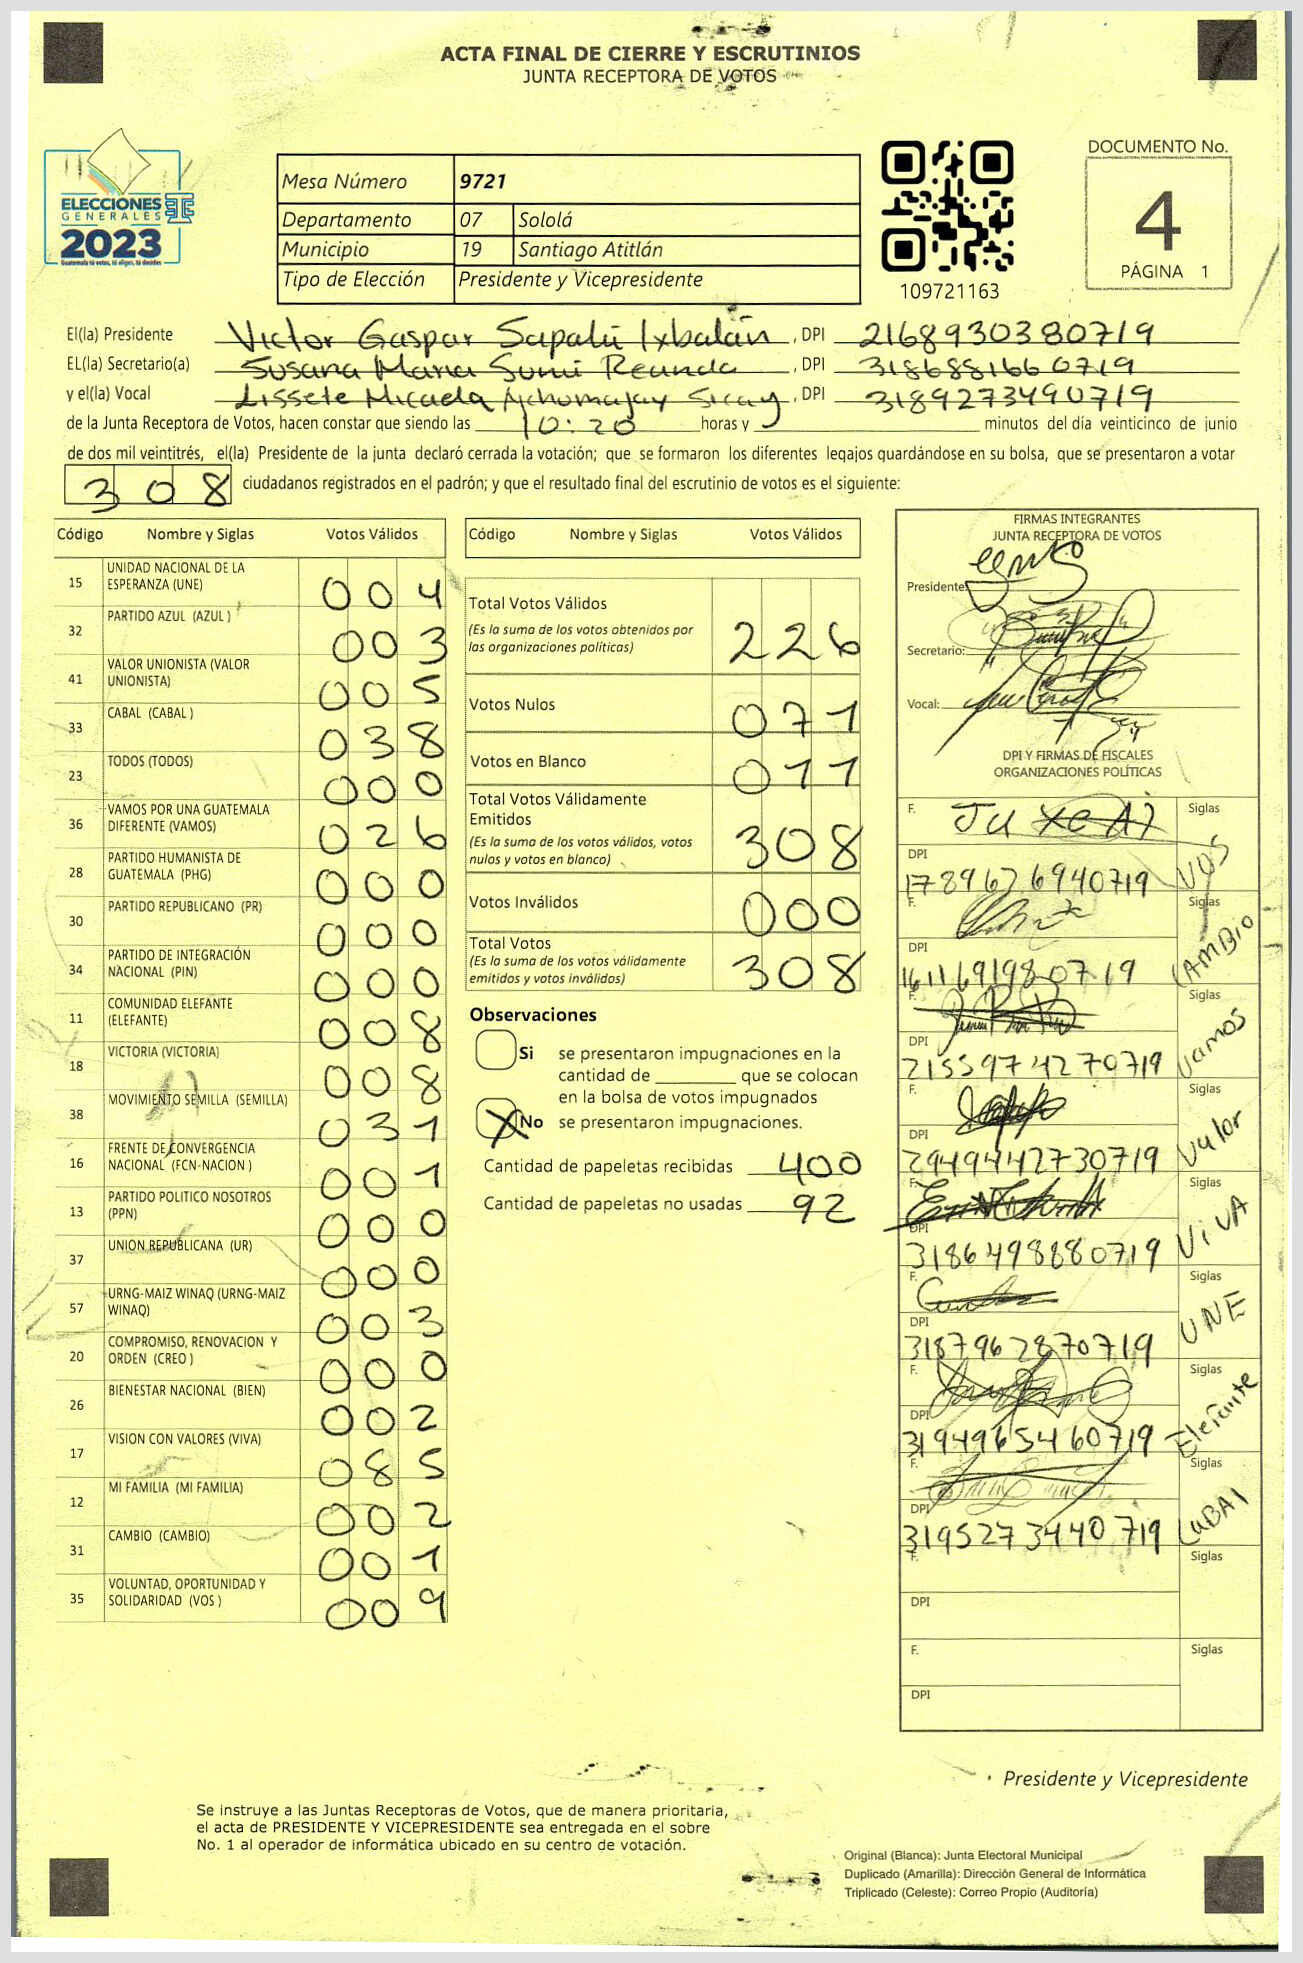 ACTA FINAL DE CIERRE Y ESCRUTINIOS
JUNTA RECEPTORA DE VOTOS
ELECCIONES
GENERALES
2023
Guatemala tú votas, tú eliges, tú decides
Mesa Número 9721
Departamento 07 Sololá
Municipio 19 Santiago Atitlán
Tipo de Elección Presidente y Vicepresidente
109721163
DOCUMENTO No.
4
PÁGINA 1
El(la) Presidente Victor Gaspar Sapalú Ixbalán, DPI 2168930380719
EL(la) Secretario(a) Susana Maria Sumi Reanda, DPI 3186881660719
y el(la) Vocal Lissete Micaela Ajchomajay Sicay, DPI 3189273490719
de la Junta Receptora de Votos, hacen constar que siendo las 10:20 horas y minutos del día veinticinco de junio
de dos mil veintitrés, el(la) Presidente de la junta declaró cerrada la votación; que se formaron los diferentes legajos quardándose en su bolsa, que se presentaron a votar
308 ciudadanos registrados en el padrón; y que el resultado final del escrutinio de votos es el siguiente:
Código Nombre y Siglas Votos Válidos
15 UNIDAD NACIONAL DE LA
ESPERANZA (UNE) 004
32 PARTIDO AZUL (AZUL ) 003
41 VALOR UNIONISTA (VALOR
UNIONISTA) 005
33 CABAL (CABAL ) 038
23 TODOS (TODOS) 000
36 VAMOS POR UNA GUATEMALA
DIFERENTE (VAMOS) 026
28 PARTIDO HUMANISTA DE
GUATEMALA (PHG) 000
30 PARTIDO REPUBLICANO (PR) 000
34 PARTIDO DE INTEGRACIÓN
NACIONAL (PIN) 000
11 COMUNIDAD ELEFANTE
(ELEFANTE) 008
18 VICTORIA (VICTORIA) 008
38 MOVIMIENTO SEMILLA (SEMILLA) 031
16 FRENTE DE CONVERGENCIA
NACIONAL (FCN-NACION ) 001
13 PARTIDO POLITICO NOSOTROS
(PPN) 000
37 UNION REPUBLICANA (UR) 000
57 URNG-MAIZ WINAQ (URNG-MAIZ
WINAQ) 003
20 COMPROMISO, RENOVACION Y
ORDEN (CREO ) 000
26 BIENESTAR NACIONAL (BIEN) 002
17 VISION CON VALORES (VIVA) 085
12 MI FAMILIA (MI FAMILIA) 002
31 CAMBIO (CAMBIO) 001
35 VOLUNTAD, OPORTUNIDAD Y
SOLIDARIDAD (VOS ) 009
Código Nombre y Siglas Votos Válidos
Total Votos Válidos
(Es la suma de los votos obtenidos por
las organizaciones políticas) 226
Votos Nulos 071
Votos en Blanco 011
Total Votos Válidamente
Emitidos
(Es la suma de los votos válidos, votos
nulos y votos en blanco) 308
Votos Inválidos 000
Total Votos
(Es la suma de los votos válidamente
emitidos y votos inválidos) 308
Observaciones
Si se presentaron impugnaciones en la
cantidad de ________ que se colocan
en la bolsa de votos impugnados
X No se presentaron impugnaciones.
Cantidad de papeletas recibidas 400
Cantidad de papeletas no usadas 92
FIRMAS INTEGRANTES
JUNTA RECEPTORA DE VOTOS
Presidente:
Secretario:
Vocal:
DPI Y FIRMAS DE FISCALES
ORGANIZACIONES POLÍTICAS
F. Siglas VOS
DPI 1789676940719
F. Siglas CAMBIO
DPI 1611691980719
F. Siglas Vamos
DPI 2155974270719
F. Siglas Valor
DPI 2949442730719
F. Siglas ViVA
DPI 3186498880719
F. Siglas UNE
DPI 3187962870719
F. Siglas Elefante
DPI 3194965460719
F. Siglas CABAl
DPI 3195273440719
F. Siglas
DPI
F. Siglas
DPI
Presidente y Vicepresidente
Se instruye a las Juntas Receptoras de Votos, que de manera prioritaria,
el acta de PRESIDENTE Y VICEPRESIDENTE sea entregada en el sobre
No. 1 al operador de informática ubicado en su centro de votación.
Original (Blanca): Junta Electoral Municipal
Duplicado (Amarilla): Dirección General de Informática
Triplicado (Celeste): Correo Propio (Auditoría)